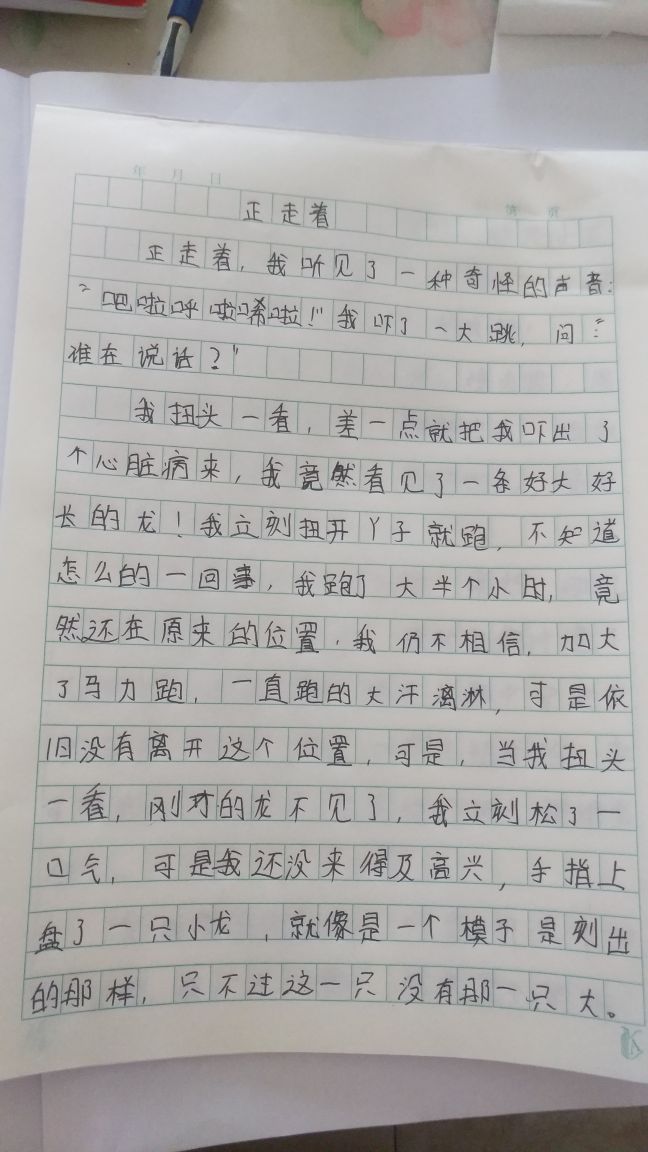 年 月 日
第 页
正走着
正走着，我听见了一种奇怪的声音：
“吧啦呼啦唏啦！”我吓了一大跳，问：“
谁在说话？”
我扭头一看，差一点就把我吓出了
个心脏病来，我竟然看见了一条好大好
长的龙！我立刻扭开丫子就跑，不知道
怎么的一回事，我跑了大半个小时，竟
然还在原来的位置．我仍不相信，加大
了马力跑，一直跑的大汗漓淋，可是依
旧没有离开这个位置，可是，当我扭头
一看，刚才的龙不见了，我立刻松了一
口气，可是我还没来得及高兴，手指上
盘了一只小龙，就像是一个模子是刻出
的那样，只不过这一只没有那一只大。